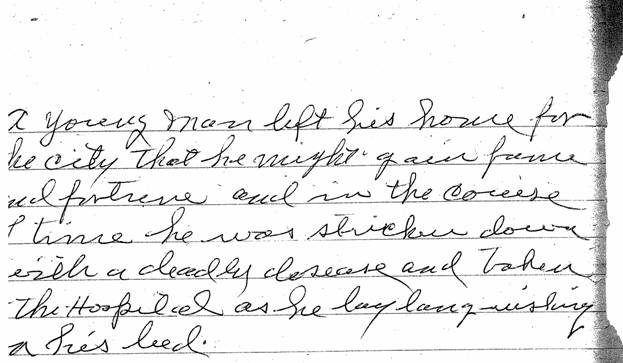 A young man left his home for
he city that he might gain fame
nd fortune and in the course
f time he was stricken down
with a deadly disease and taken
the Hospital as he lay languishing
n his bed.